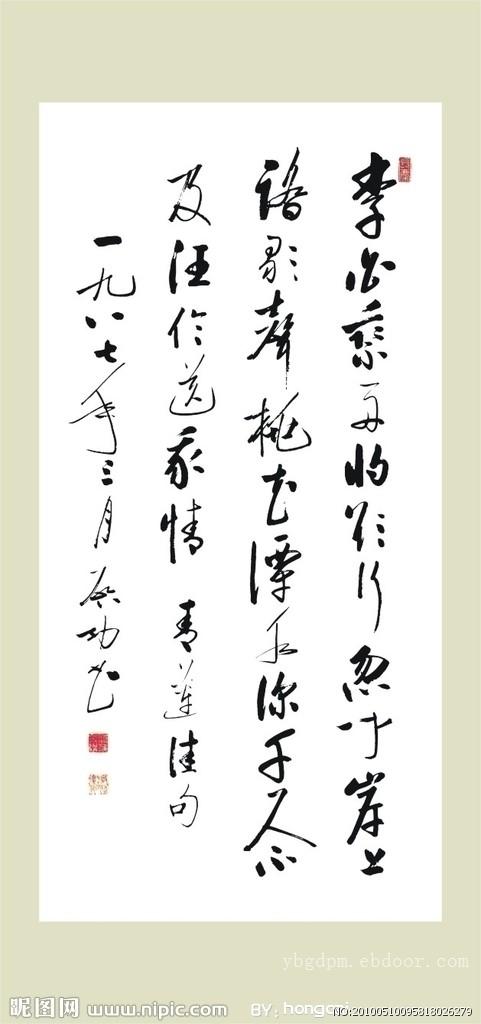 李白乘舟將欲行忽聞岸上
踏歌聲桃花潭水深千尺不
及汪倫送我情 青蓮佳句
一九八七年三月 啟功書
ybgdpm.ebdoor.com
昵图网 www.nipic.com BY: NO:20100510095818026279